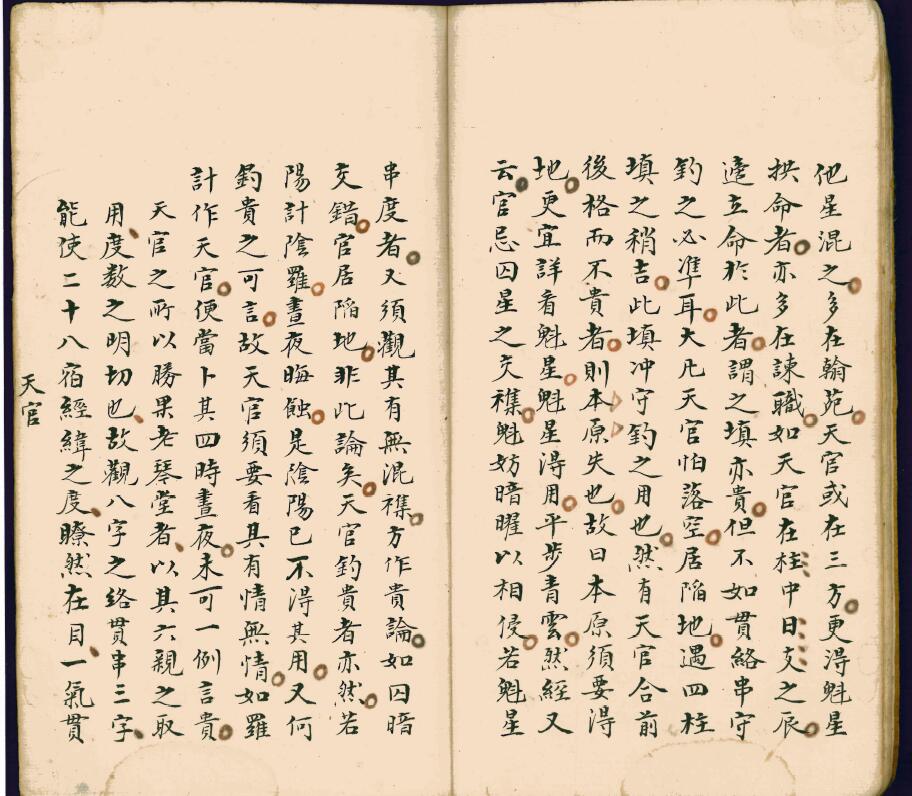 他星混之多在翰苑天官或在三方更淂魁星
拱命者亦多在諫職如天官在柱中日支之辰
遶立命於此者謂之填亦貴但不如貫絡串守
釣之必準耳大凡天官怕落空居陷地遇四柱
填之稍吉此填冲守釣之用也然有天官合前
後格而不貴者則本原失也故曰本原須要淂
地更宜詳看魁星魁星淂用平步青雲然經又
云官忌囚星之交襍魁妨暗曜以相侵若魁星
串度者又須觀其有無混襍方作貴論如囚暗
交錯官居陷地非此論矣天官釣貴者亦然若
陽計陰羅晝夜晦蝕是陰陽已不淂其用又何
釣貴之可言故天官須要看其有情無情如羅
計作天官便當卜其四時晝夜未可一例言貴
天官之所以勝果老琴堂者以其六親之取
用度数之明切也故觀八字之絡貫串三字
能使二十八宿經緯之度瞭然在目一氣貫
天官